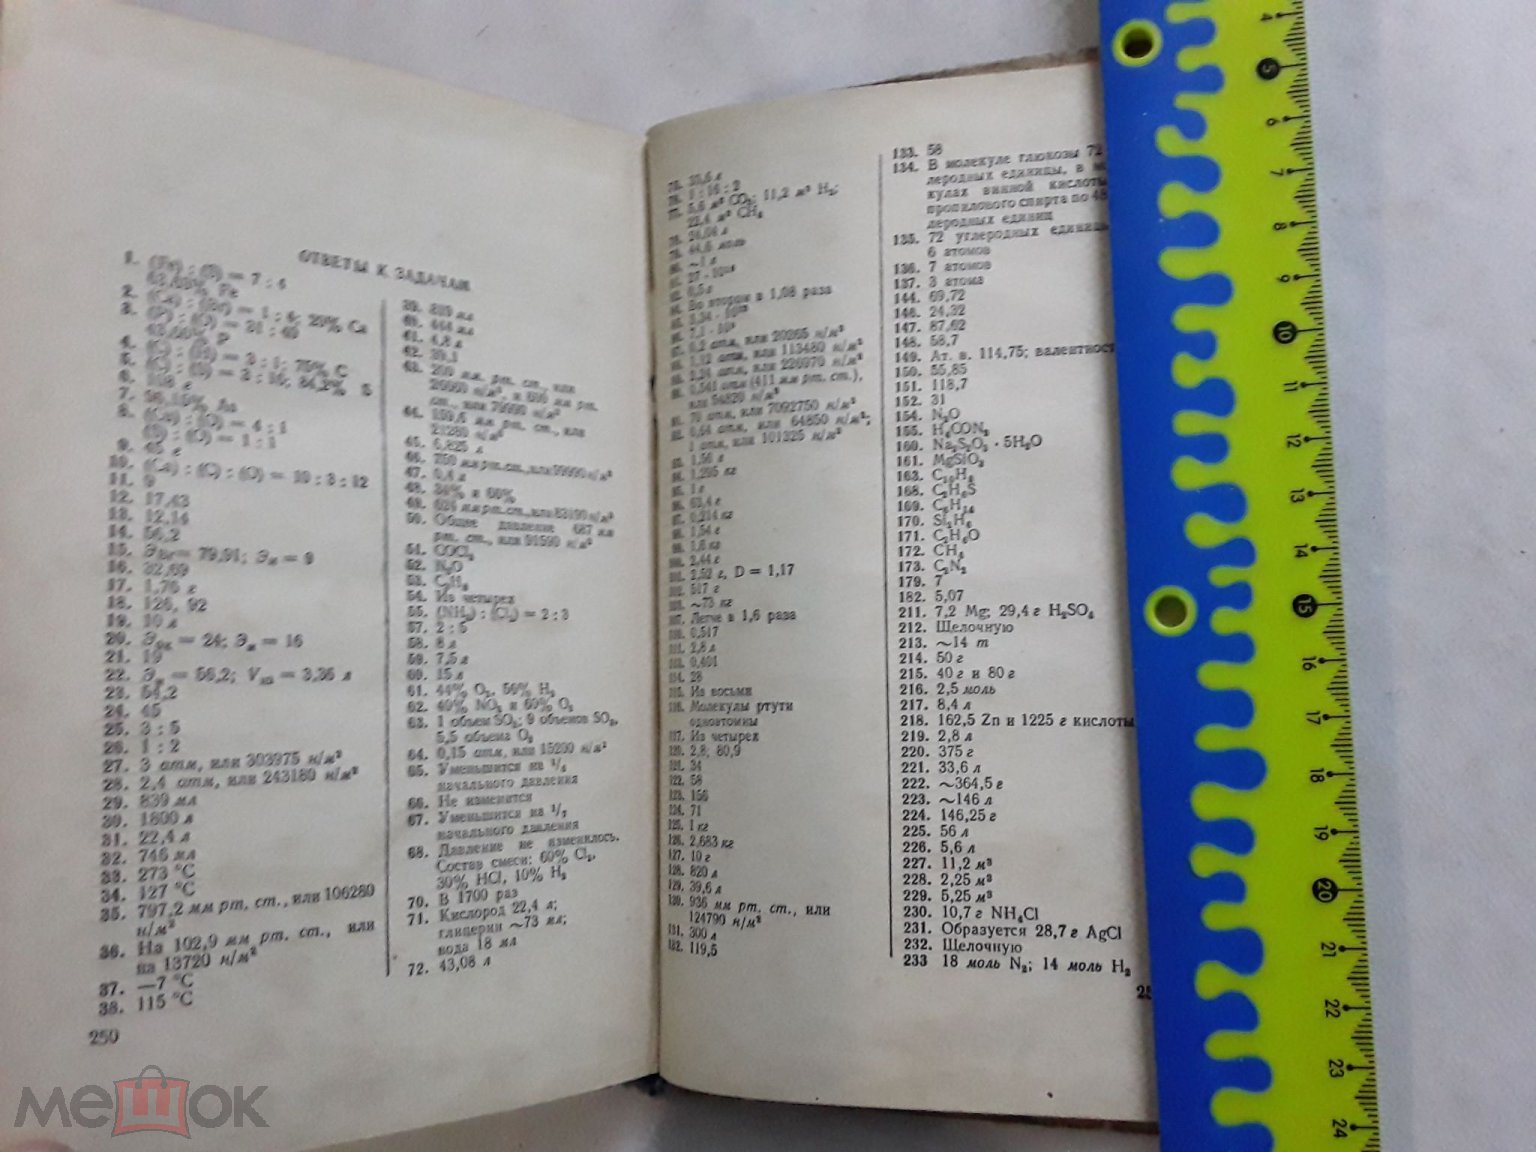 ОТВЕТЫ К ЗАДАЧАМ
1. (Fe) : (S) = 7 : 4
2. (Ca) : (Br) = 1 : 4; 20% Ca
3. (P) : (O) = 31 : 40
4. (C) : (H) = 3 : 1; 75% C
5. (C) : (S) = 3 : 16; 84,2% S
6. 108 г
8. (Cu) : (O) = 4 : 1
(S) : (O) = 1 : 1
9. 45 г
10. (Ca) : (C) : (O) = 10 : 3 : 12
11. 9
12. 17,43
13. 12,14
14. 56,2
15. Э = 79,91; Э = 9
16. 32,69
17. 1,76 г
18. 126, 92
19. 10 л
20. Э = 24; Э = 16
21. 19
22. Э = 56,2; V = 3,36 л
23. 54,2
24. 45
25. 3 : 5
26. 1 : 2
27. 3 атм, или 303975 н/м²
28. 2,4 атм, или 243180 н/м²
29. 839 мл
30. 1800 л
31. 22,4 л
32. 746 мл
33. 273 °C
34. 127 °C
35. 797,2 мм рт. ст., или 106280
н/м²
36. На 102,9 мм рт. ст., или
на 13720 н/м²
37. —7 °C
38. 115 °C
250
40. 444 мл
41. 4,8 л
42. 39,1
43. 200 мм рт. ст., или
ст., или 79990 н/м²
44. 159,6 мм рт. ст., или
21280 н/м²
45. 6,825 л
46. 750 мм рт. ст., или 99990 н/м²
47. 0,4 л
48. 34% и 66%
49. 624 мм рт. ст., или 83190 н/м²
50. Общее давление 687 мм
рт. ст., или 91590 н/м²
51. COCl₂
52. N₂O
53.
54. Из четырех
55. (NH₃) : (Cl₂) = 2 : 3
57. 2 : 5
58. 8 л
59. 7,5 л
60. 15 л
61. 44% O₂, 56% H₂
62. 40% NO₂ и 60% O₂
63. 1 объем SO₂; 9 объемов SO₃,
5,5 объема O₂
64. 0,15 атм, или 15200 н/м²
65. Уменьшится на
начального давления
66. Не изменится
67. Уменьшится на
начального давления
68. Давление не изменилось.
Состав смеси: 60% Cl₂,
30% HCl, 10% H₂
70. В 1700 раз
71. Кислород 22,4 л;
глицерин ~73 мл;
вода 18 мл
72. 43,08 л
33,6 л
1 : 16 : 2
5,6 м³ CO₂; 11,2 м³ H₂;
22,4 м³ CH₄
24,04 л
44,6 моль
~1 л
0,5 л
Во втором в 1,08 раза
0,2 атм, или 20265 н/м²
1,12 атм, или 113480 н/м²
2,24 атм, или 226970 н/м²
0,541 атм (411 мм рт. ст.),
или 54820 н/м²
70 атм, или 7092750 н/м²
0,64 атм, или 64850 н/м²;
1 атм, или 101325 н/м²
1,56 г
1,295 кг
1 г
63,4 г
0,214 кг
1,54 г
1,6 кг
2,44 г
3,52 г, D = 1,17
517 г
~73 кг
Легче в 1,6 раза
0,517
2,8 л
0,401
114. 28
115. Из восьми
116. Молекулы ртути
одноатомны
117. Из четырех
120. 2,8; 80,9
121. 34
122. 58
123. 156
124. 71
125. 1 кг
126. 2,683 кг
127. 10 г
128. 820 л
129. 39,6 л
130. 936 мм рт. ст., или
124790 н/м²
131. 300 л
132. 119,5
133. 58
134. В молекуле глюкозы 72
леродных единицы, в мо
кулах винной кислоты
пропилового спирта по 48
леродных единиц
135. 72 углеродных единицы
6 атомов
136. 7 атомов
137. 3 атома
144. 69,72
146. 24,32
147. 87,62
148. 58,7
149. Ат. в. 114,75; валентност
150. 55,85
151. 118,7
152. 31
154. N₂O
155. H₄CON₂
160. Na₂S₂O₃ · 5H₂O
161. MgSiO₃
163. C₁₀H₈
168. C₂H₆S
169. C₆H₁₄
170. Si₂H₆
171. C₂H₆O
172. CH₄
173. C₂N₂
179. 7
182. 5,07
211. 7,2 Mg; 29,4 г H₂SO₄
212. Щелочную
213. ~14 т
214. 50 г
215. 40 г и 80 г
216. 2,5 моль
217. 8,4 л
218. 162,5 Zn и 1225 г кислоты
219. 2,8 л
220. 375 г
221. 33,6 л
222. ~364,5 г
223. ~146 л
224. 146,25 г
225. 56 л
226. 5,6 л
227. 11,2 м³
228. 2,25 м³
229. 5,25 м³
230. 10,7 г NH₄Cl
231. Образуется 28,7 г AgCl
232. Щелочную
233 18 моль N₂; 14 моль H₂
25
4
5
6
7
8
9
10
11
12
13
14
15
16
17
18
19
20
21
22
23
24
мешок